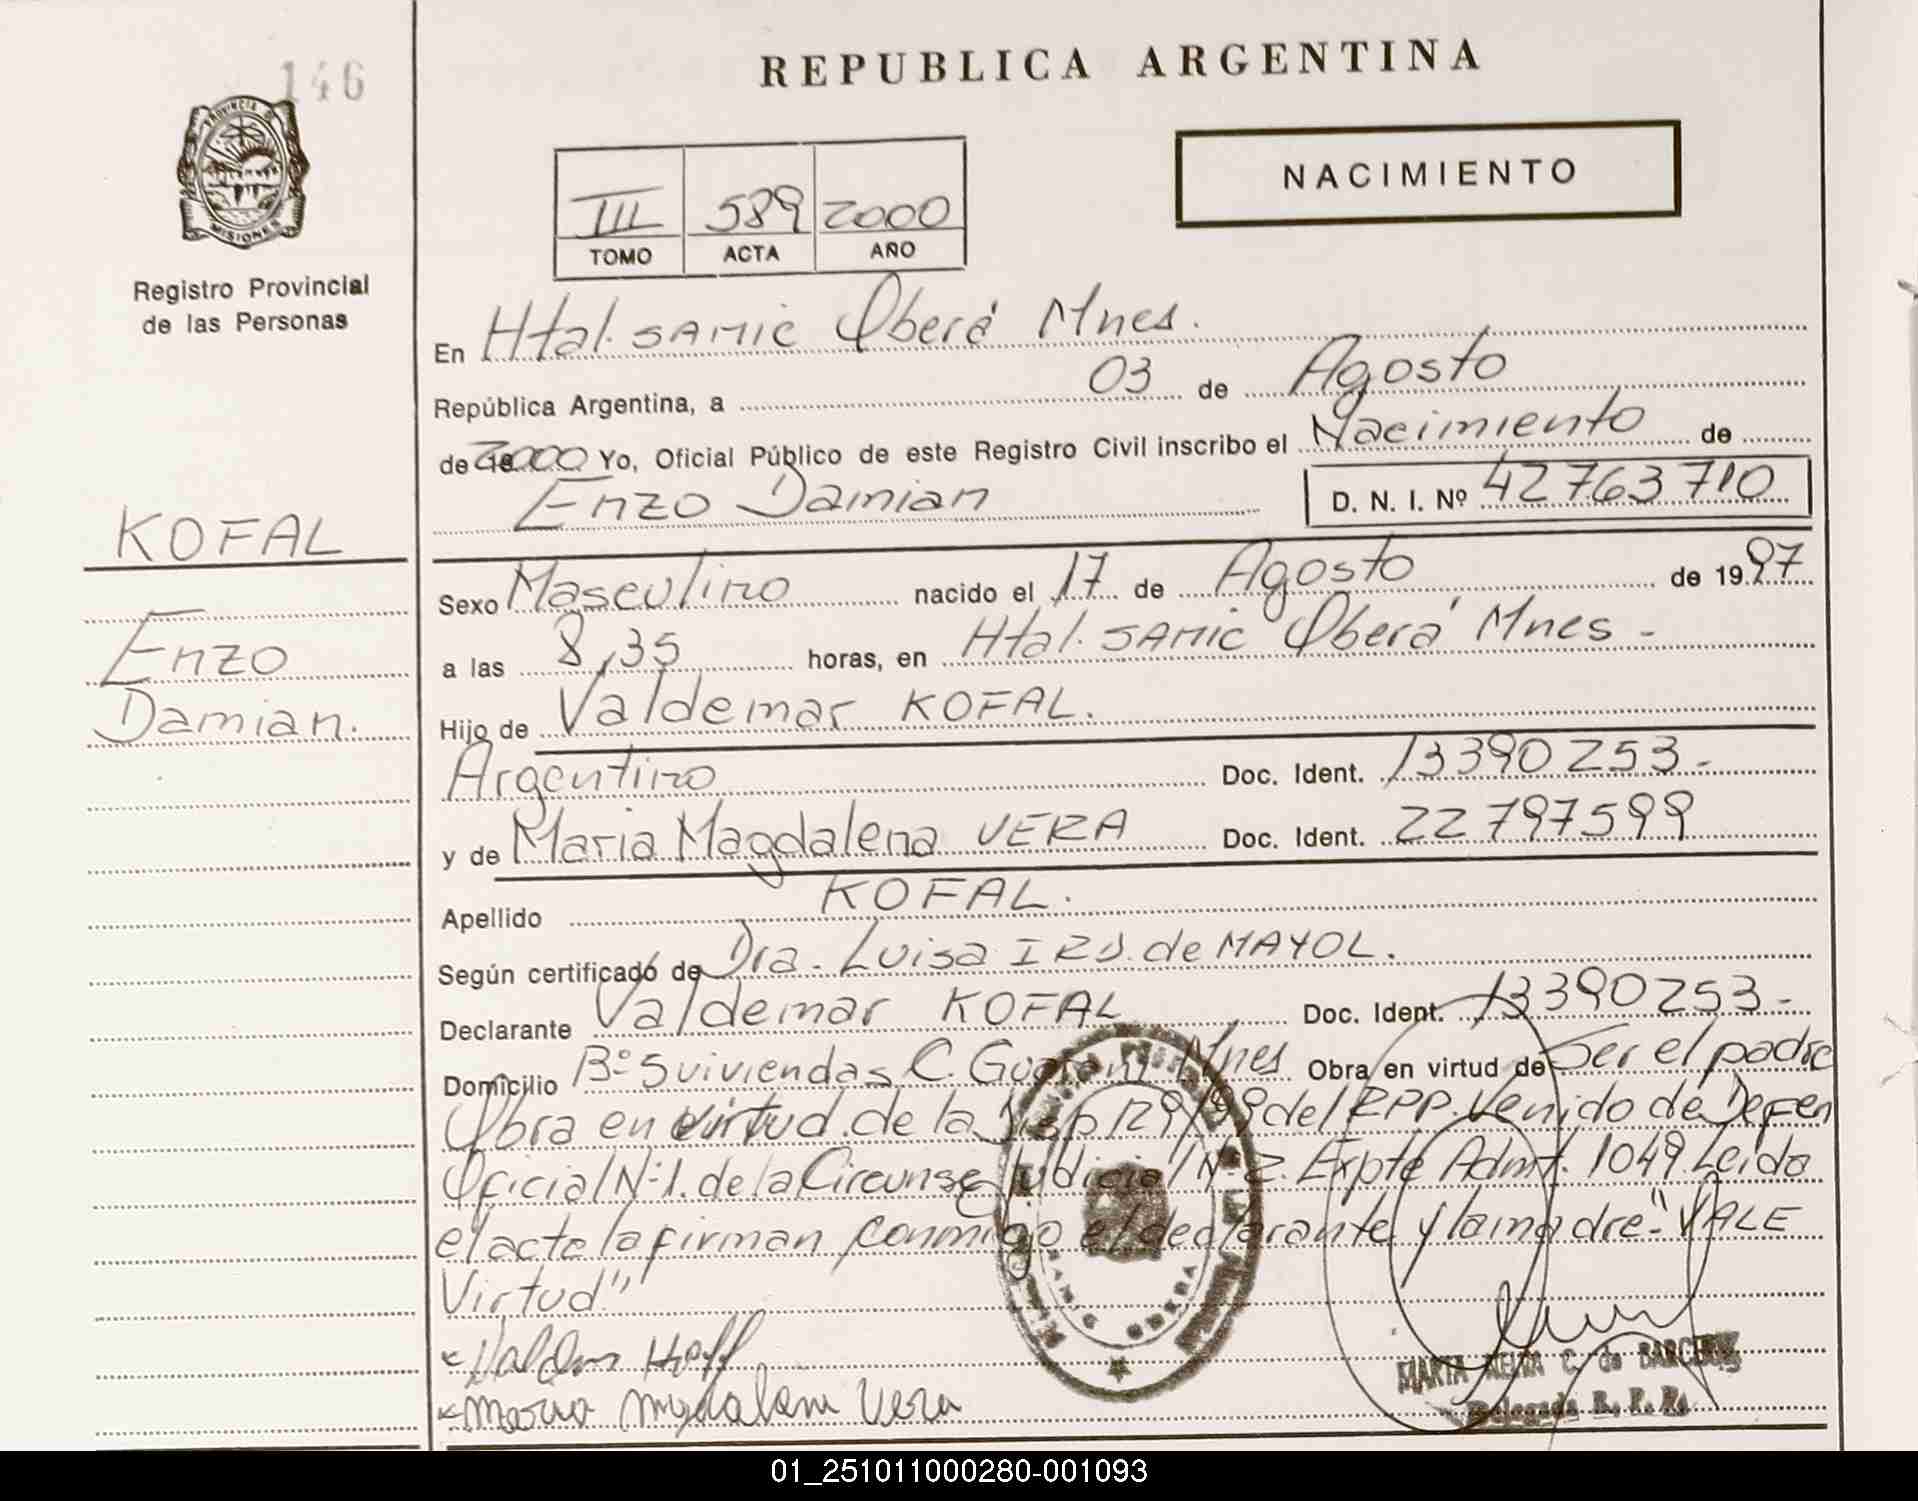 146
PROVINCIA DE
MISIONES
Registro Provincial
de las Personas
KOFAL
Enzo
Damian.
REPUBLICA ARGENTINA
NACIMIENTO
III 589 2000
TOMO ACTA AÑO
En Htal. SAMIC Oberá Mnes.
República Argentina, a 03 de Agosto
de 2000 Yo, Oficial Público de este Registro Civil inscribo el Nacimiento de
Enzo Damian D. N. I. Nº 42763710
Sexo Masculino nacido el 17 de Agosto de 1997
a las 8,35 horas, en Htal. SAMIC Oberá Mnes -
Hijo de Valdemar KOFAL.
Argentino Doc. Ident. 13390253-
y de Maria Magdalena VERA Doc. Ident. 22797599
Apellido KOFAL.
Según certificado de Dra. Luisa de MAYOL.
Declarante Valdemar KOFAL Doc. Ident. 13390253-
Domicilio Bº 5 viviendas C. Guarani Mnes Obra en virtud de Ser el padre
Obra en virtud de la Disp 129/99 del RPP. Venido de Defen
Oficial Nº1. de la Circunsc Judicial Nº 2. Expte Admt. 1049 Leida
el acta la firman conmigo el declarante y la madre-"VALE
Virtud"
Maria Magdalena Vera
MARTA C. de
Delegada R. P. P.
01_251011000280-001093